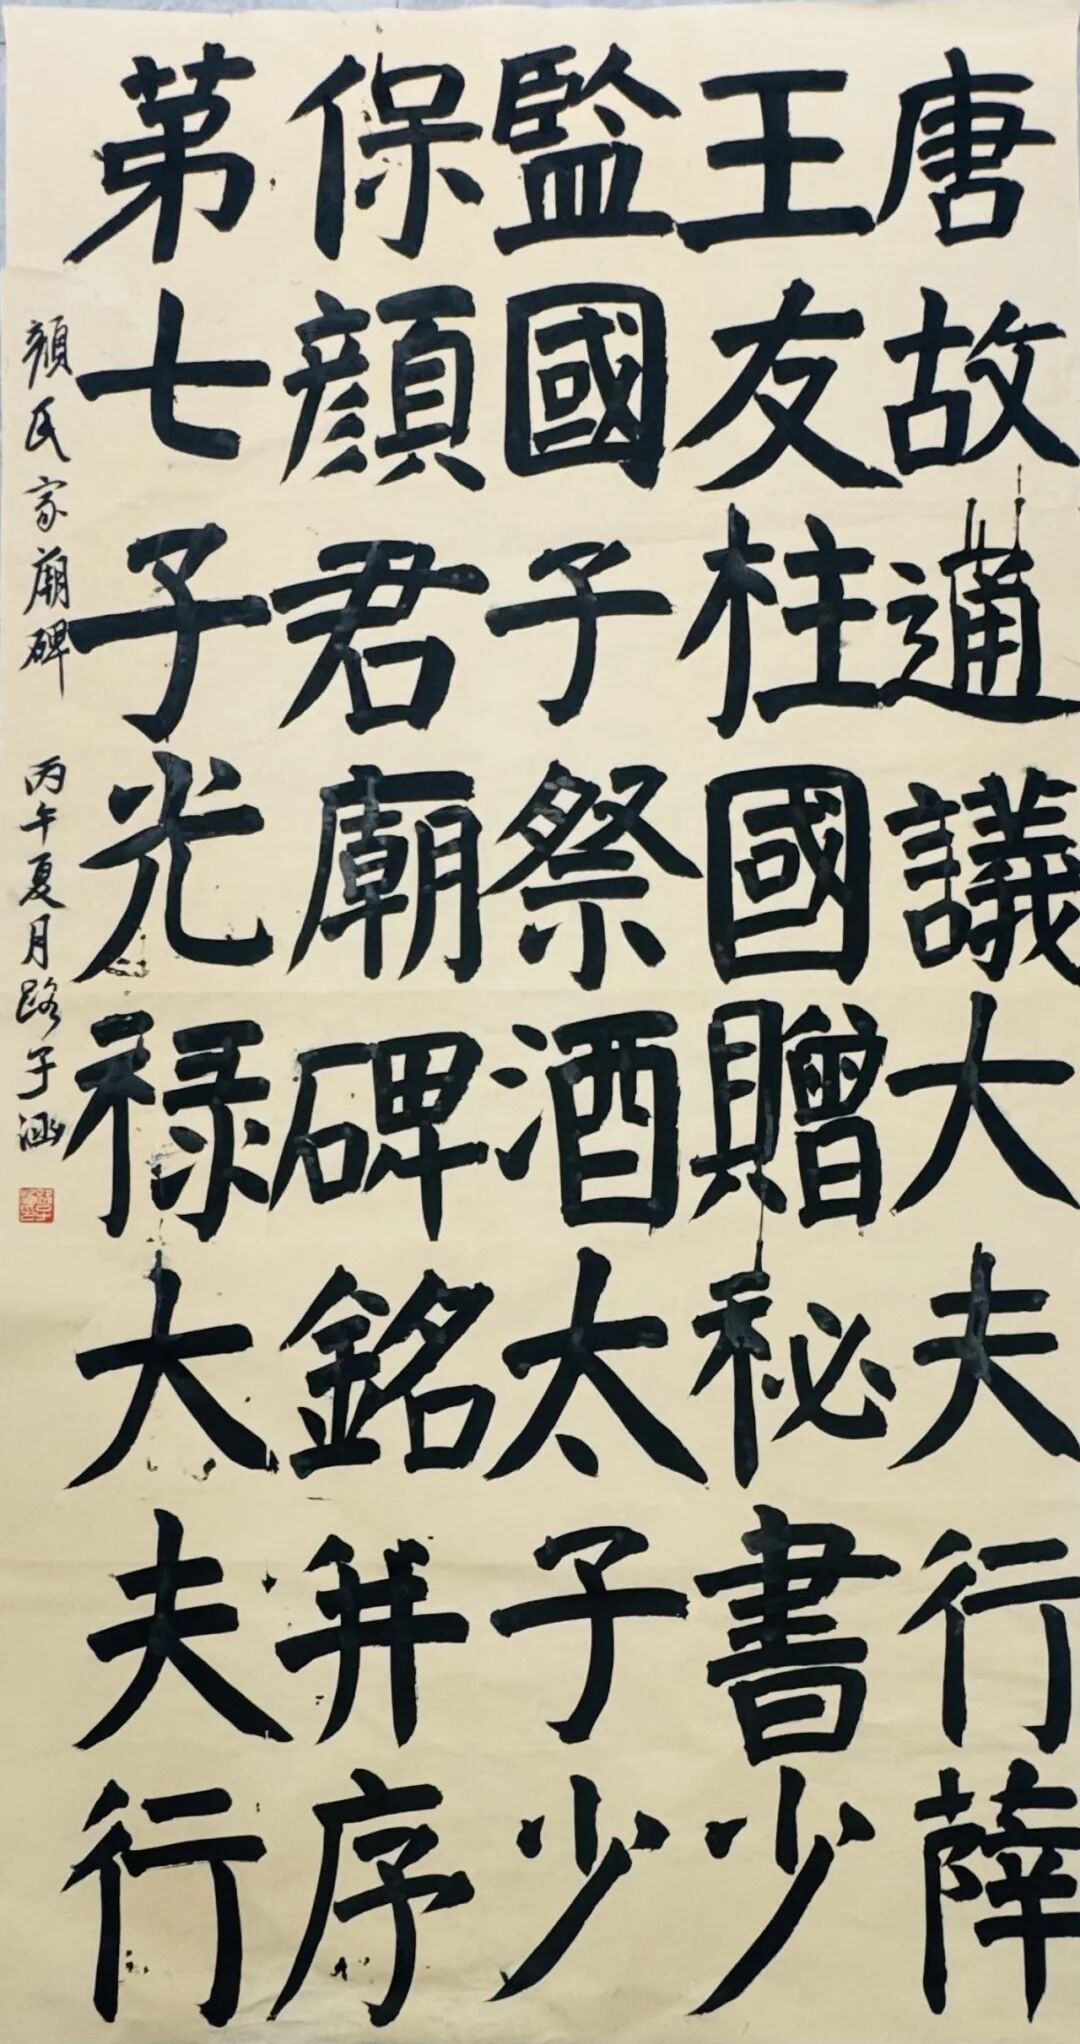 唐故通議大夫行薛
王友柱國贈秘書少
監國子祭酒太子少
保顏君廟碑銘并序
第七子光祿大夫行
顏氏家廟碑 丙午夏月路子涵